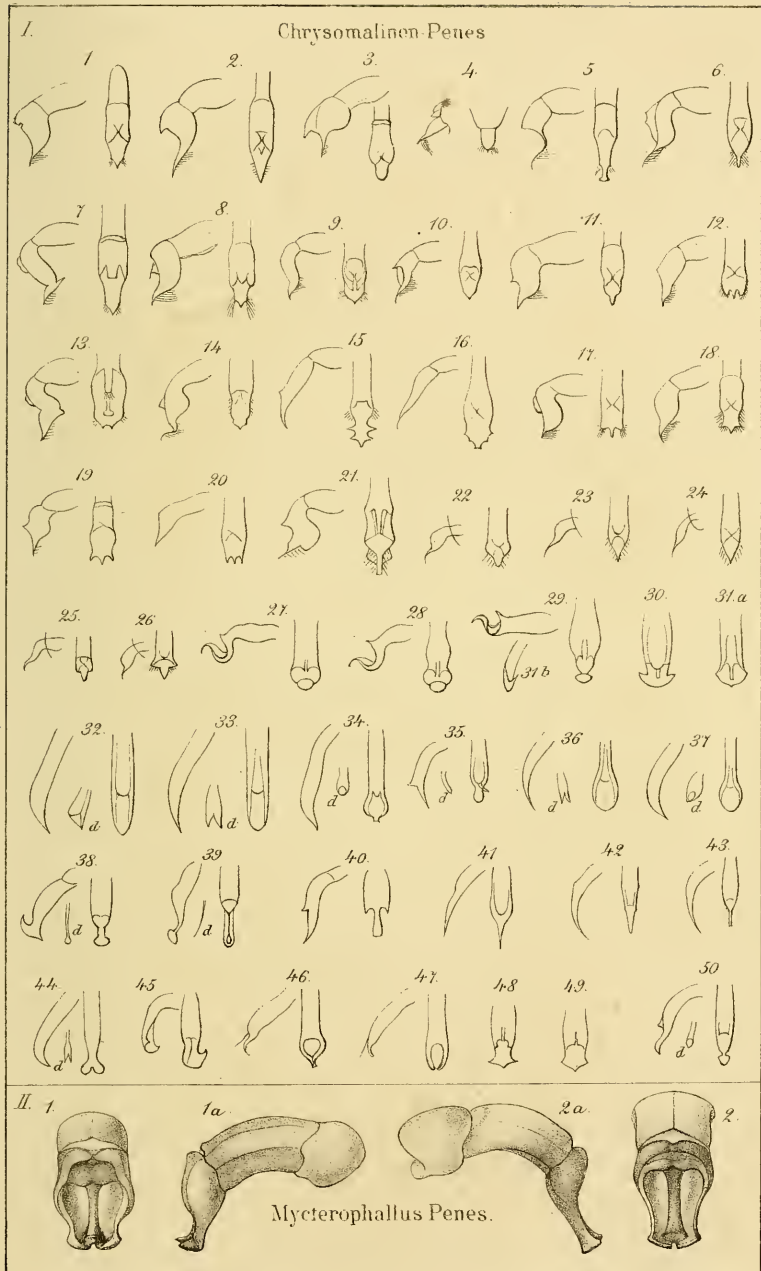 I.
Chrysomalinen-Penes
1 2. 3. 4. 5 6.
7 8. 9. 10. 11. 12.
13. 14 15 16. 17. 18.
19 20 21. 22 23 24
25. 26 27. 28 29. 30. 31.a
31b
32. 33. 34. 35. 36 37
d d d d d d
38. 39 40. 41 42 43.
d d
44. 45 46. 47. 48 49. 50
d d
II. 1. 1a. 2a. 2.
Mycterophallus Penes.